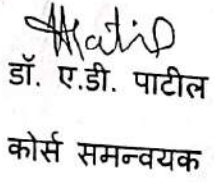 डॉ. ए.डी. पाटील
कोर्स समन्वयक